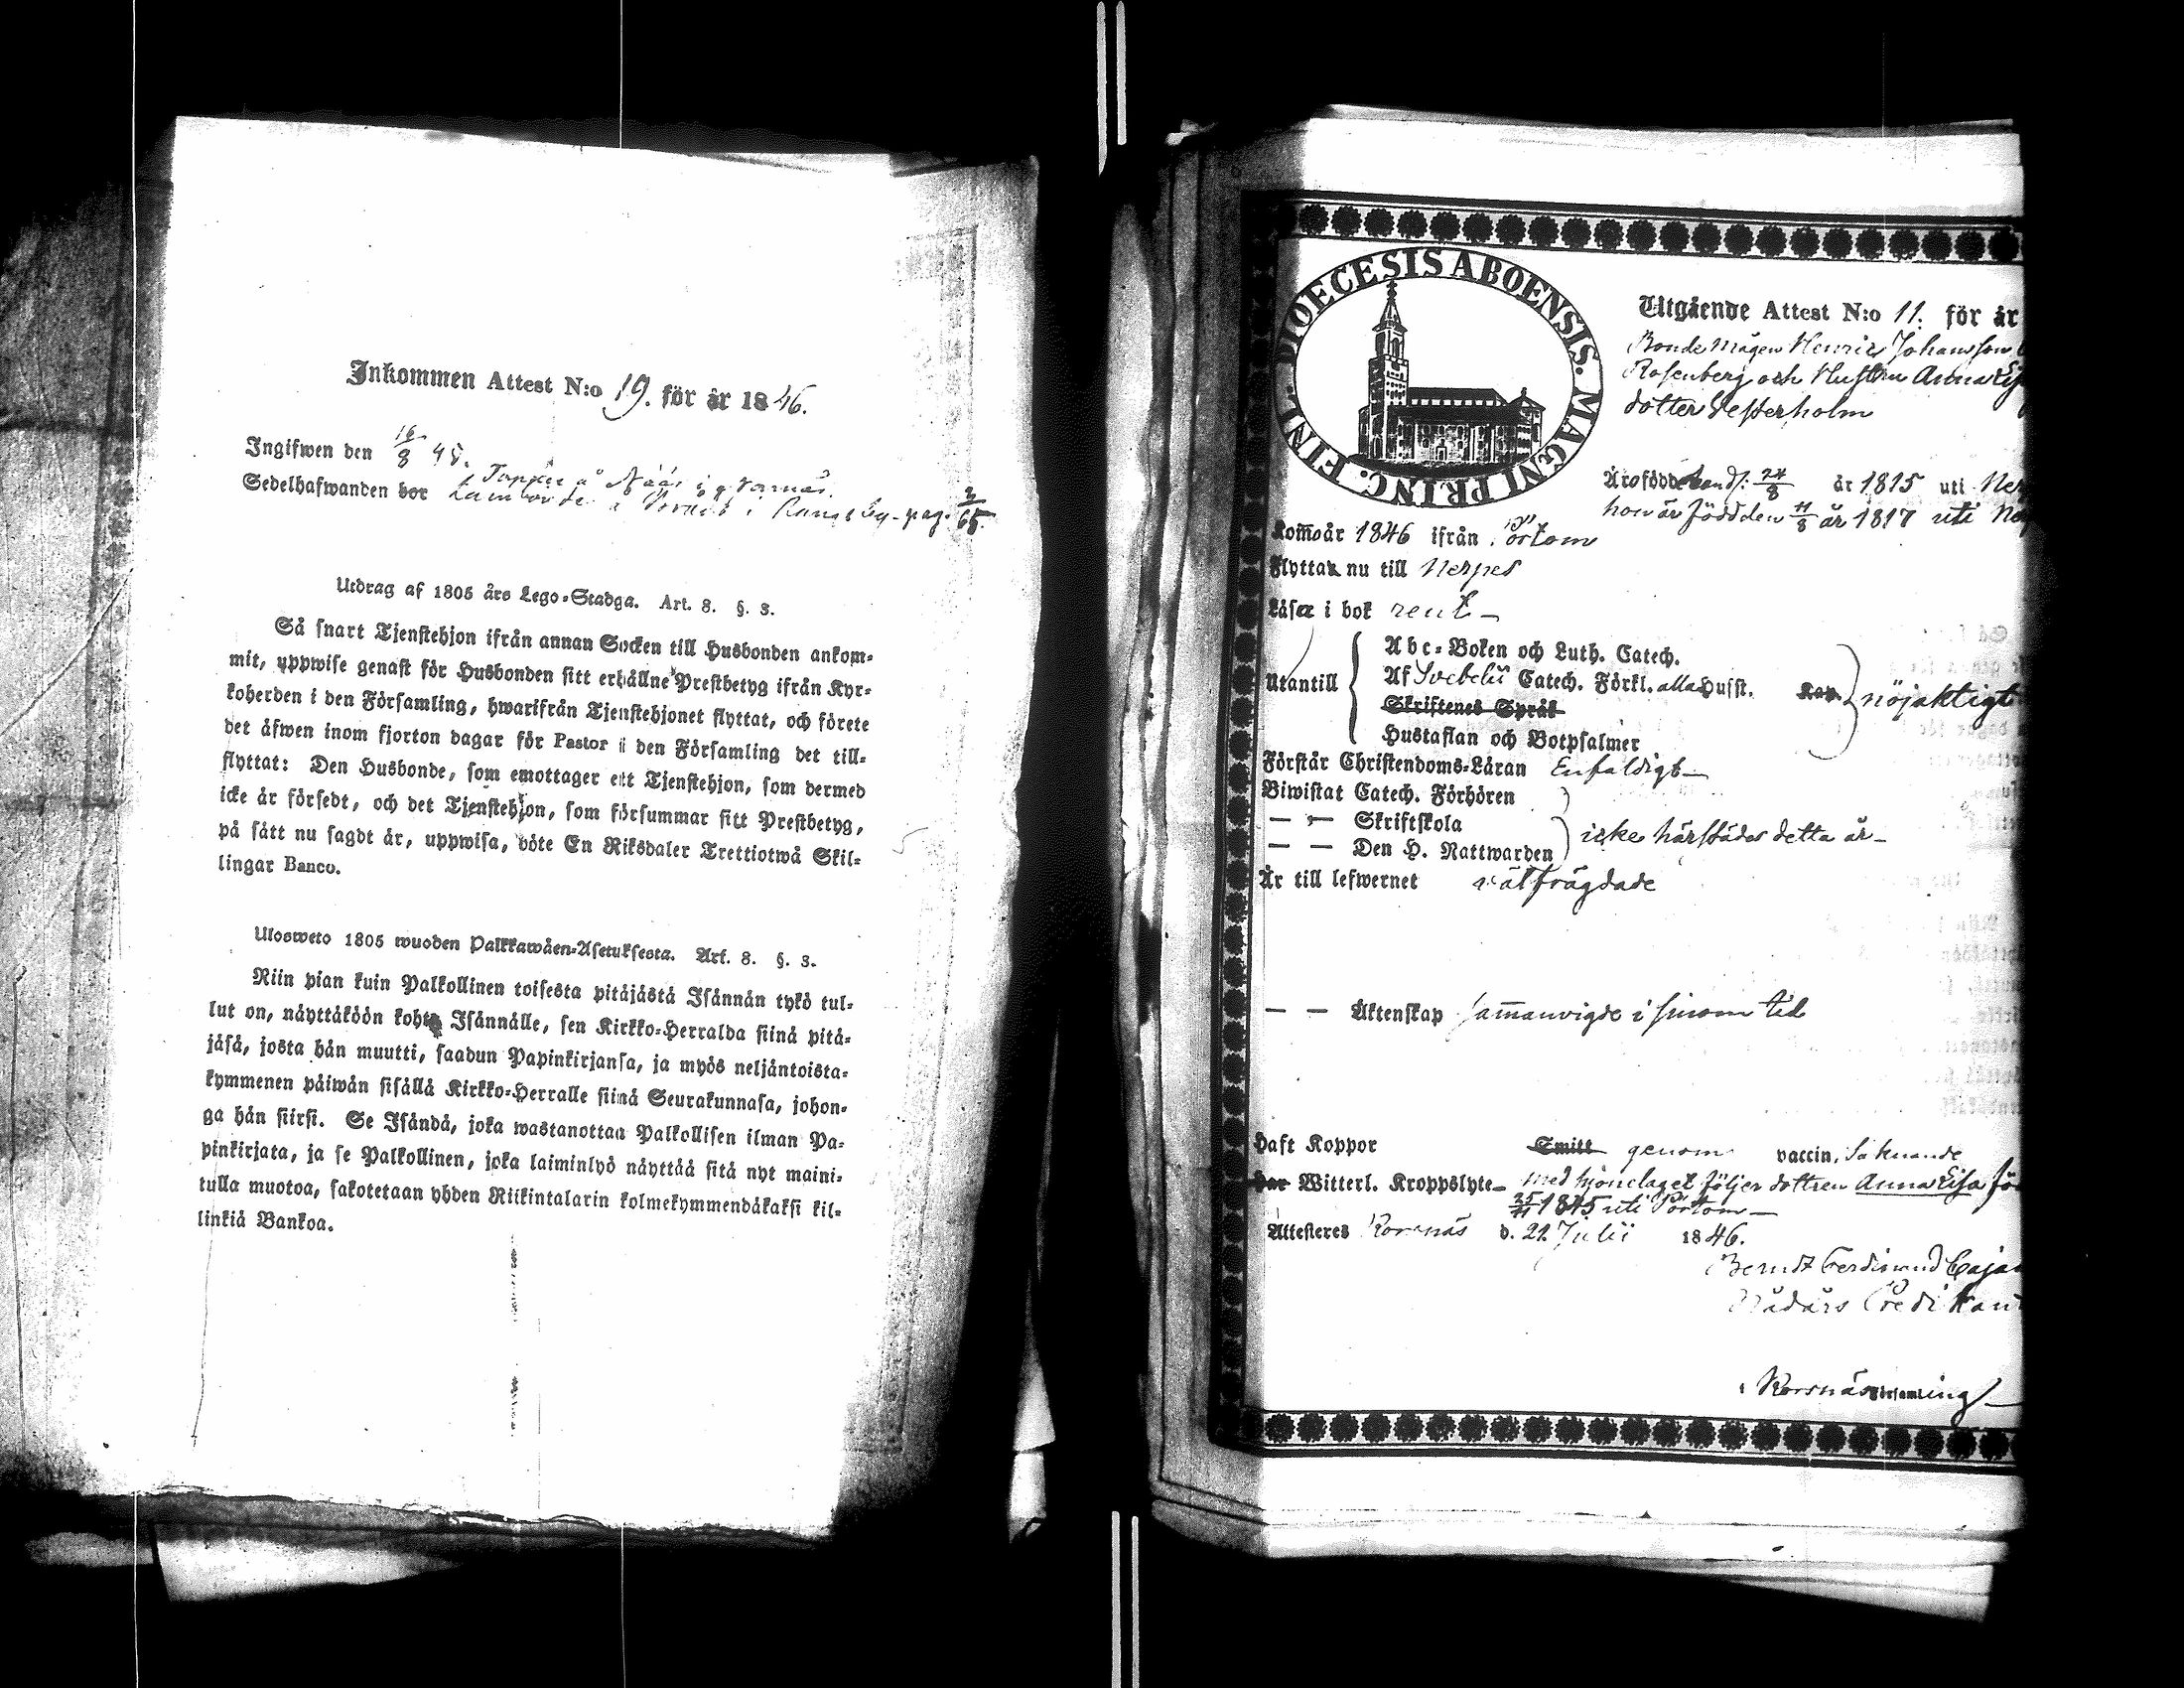 Inkommen Attest N:o 19. för år 1846.
Ingifwen den 16/8 48.
Sedelhafwanden bor
i Rangsby - pag. 65.
Utdrag af 1805 års Lego-Stadga. Art. 8. §. 3.
Så snart Tjenstehjon ifrån annan Socken till Husbonden ankom-
mit, uppwise genast för Husbonden sitt erhållne Prestbetyg ifrån Kyr-
koherden i den Församling, hwarifrån Tjenstehjonet flyttat, och förete
det äfwen inom fjorton dagar för Pastor i den Församling det till-
flyttat: Den Husbonde, som emottager ett Tjenstehjon, som dermed
icke är försedt, och det Tjenstehjon, som försummar sitt Prestbetyg,
på sätt nu sagdt är, uppwisa, böte En Riksdaler Trettiotwå Skil-
lingar Banco.
Ulosweto 1805 wuoden Palkkawäen-Asetuksesta. Art. 8. §. 3.
Niin pian kuin Palkollinen toisesta pitäjästä Isännän tykö tul-
lut on, näyttäköön kohta Isännälle, sen Kirkko-Herralda siinä pitä-
jäsä, josta hän muutti, saadun Papinkirjansa, ja myös neljäntoista-
kymmenen päiwän sisällä Kirkko-Herralle siinä Seurakunnasa, johon-
ga hän siirsi. Se Isändä, joka wastanottaa Palkollisen ilman Pa-
pinkirjata, ja se Palkollinen, joka laiminlyö näyttää sitä nyt maini-
tulla muotoa, sakotetaan yhden Riikintalarin kolmekymmendäkaksi kil-
linkiä Bankoa.
DIOECESIS ABOENSIS. MAGNI PRINC. FINL.
Utgående Attest N:o 11. för år
Bonde Mågen Henric Johansson
Rosenberg och Hustru Anna Lis
dotter Westerholm
Äro födde han d. 24/8 år 1815 uti Ner
hon är född den 11/8 år 1817 uti
Kom̄o år 1846 ifrån Pörtom
Flytta nu till Nerpes
Läsa i bok rent -
Utantill
Abc-Boken och Luth. Catech.
Af Svebelii Catech. Förkl. alla Hufst. Kap. nöjaktigt
Skriftenes Språk
Hustaflan och Botpsalmer
Förstår Christendoms-Läran Enfaldigt -
Biwistat Catech. Förhören
— — Skriftskola
— — Den H. Nattwarden icke härstädes detta år -
Är till lefwernet välfrägdade
— — Äktenskap sam̄anvigde i sinom tid
Haft Koppor Smitt genom vaccin, Saknande
har Witterl. Kroppslyte - med hjonelaget följer dottren Anna Lisa fö
1845 uti Pörtom -
Attesteres Korsnäs d. 22 Julii 1846.
Berndt Ferdinand Caja
Nådårs Predikan
i Korsnäs Församling